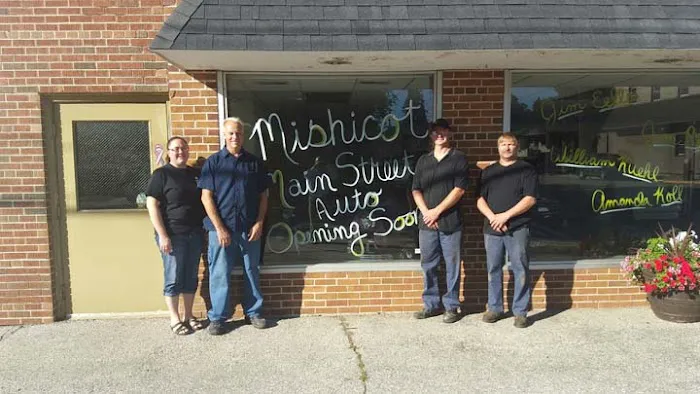 Mishicot
Main Street
Auto
Opening Soon
Jim
William Kuehl
Amanda Koll